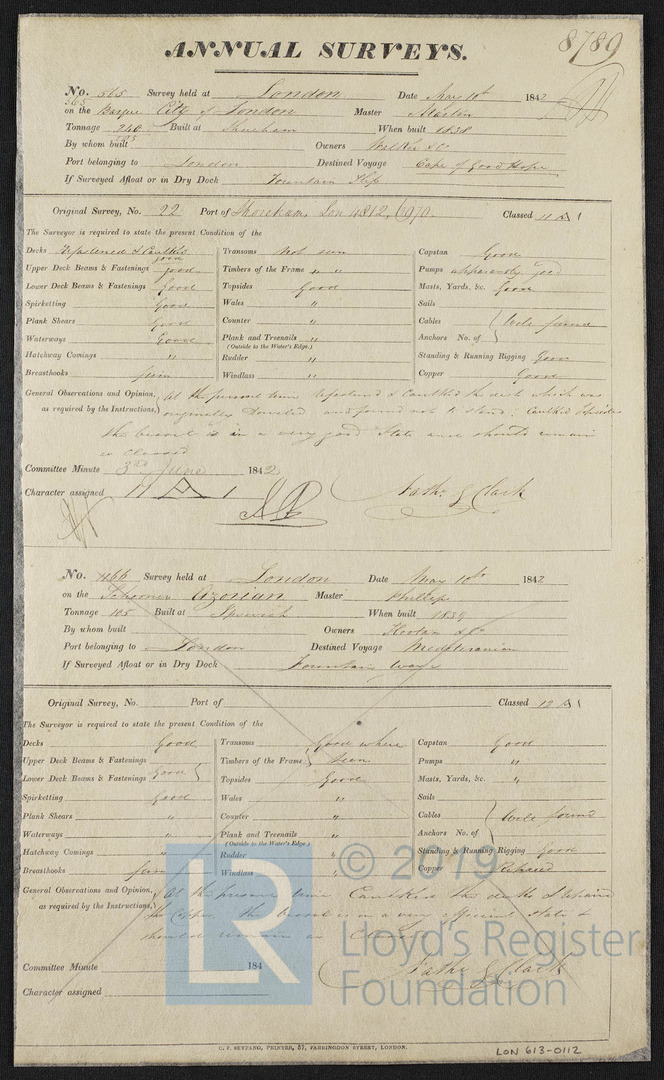 8789
ANNUAL SURVEYS.
No. 565 Survey held at London Date May 10th 1842
565
on the Barque City of London Master Martin
Tonnage 246 Built at Shoreham When built 1838
By whom built Owners Walker & Co
Port belonging to London Destined Voyage Cape of Good Hope
If Surveyed Afloat or in Dry Dock Fountain Slip
Original Survey, No. 22 Port of Shoreham, Lon 4812, 6970. Classed 11 A 1
The Surveyor is required to state the present Condition of the
Decks Refastened & Caulked good
Upper Deck Beams & Fastenings good
Lower Deck Beams & Fastenings Good
Spirketting Good
Plank Shears Good
Waterways Good
Hatchway Comings "
Breasthooks firm
Transoms Not seen
Timbers of the Frame " "
Topsides Good
Wales "
Counter "
Plank and Treenails "
(Outside to the Water's Edge.)
Rudder "
Windlass "
Capstan Good
Pumps apparently good
Masts, Yards, &c. Good
Sails
Cables
Anchors No. of } Well found
Standing & Running Rigging Good
Copper Good
General Observations and Opinion, At the present time Refastened & Caulked the deck which was
as required by the Instructions,) originally Dowelled and found not to stand; Caulked Topsides
the vessel is in a very good State and should remain
as Classed
Committee Minute 3rd June 1842
Character assigned 11 A 1
Nathl G Clark
No. 466 Survey held at London Date May 10th 1842
on the Schooner Azorian Master Phillips
Tonnage 105 Built at Ipswich When built 1839
By whom built Owners & Co
Port belonging to London Destined Voyage Mediteranian
If Surveyed Afloat or in Dry Dock Fountain
Original Survey, No. Port of Classed 12 A 1
The Surveyor is required to state the present Condition of the
Decks Good
Upper Deck Beams & Fastenings
Lower Deck Beams & Fastenings } Good
Spirketting Good
Plank Shears "
Waterways "
Hatchway Comings "
Breasthooks firm
Transoms
Timbers of the Frame } Good where Seen
Topsides Good
Wales "
Counter "
Plank and Treenails "
(Outside to the Water's Edge.)
Rudder "
Windlass "
Capstan Good
Pumps "
Masts, Yards, &c. "
Sails
Cables
Anchors No. of } Well found
Standing & Running Rigging Good
Copper Repaired
General Observations and Opinion, At the present time Caulked the decks & repaired
as required by the Instructions,) the Copper. the vessel is in a very efficient state &
should remain as Classed
Committee Minute 184
Nathl G Clark
Character assigned
LR © 2019
Lloyd's Register
Foundation
C. F. SEYFANG, PRINTER, 57, FARRINGDON STREET, LONDON.
LON 613-0112